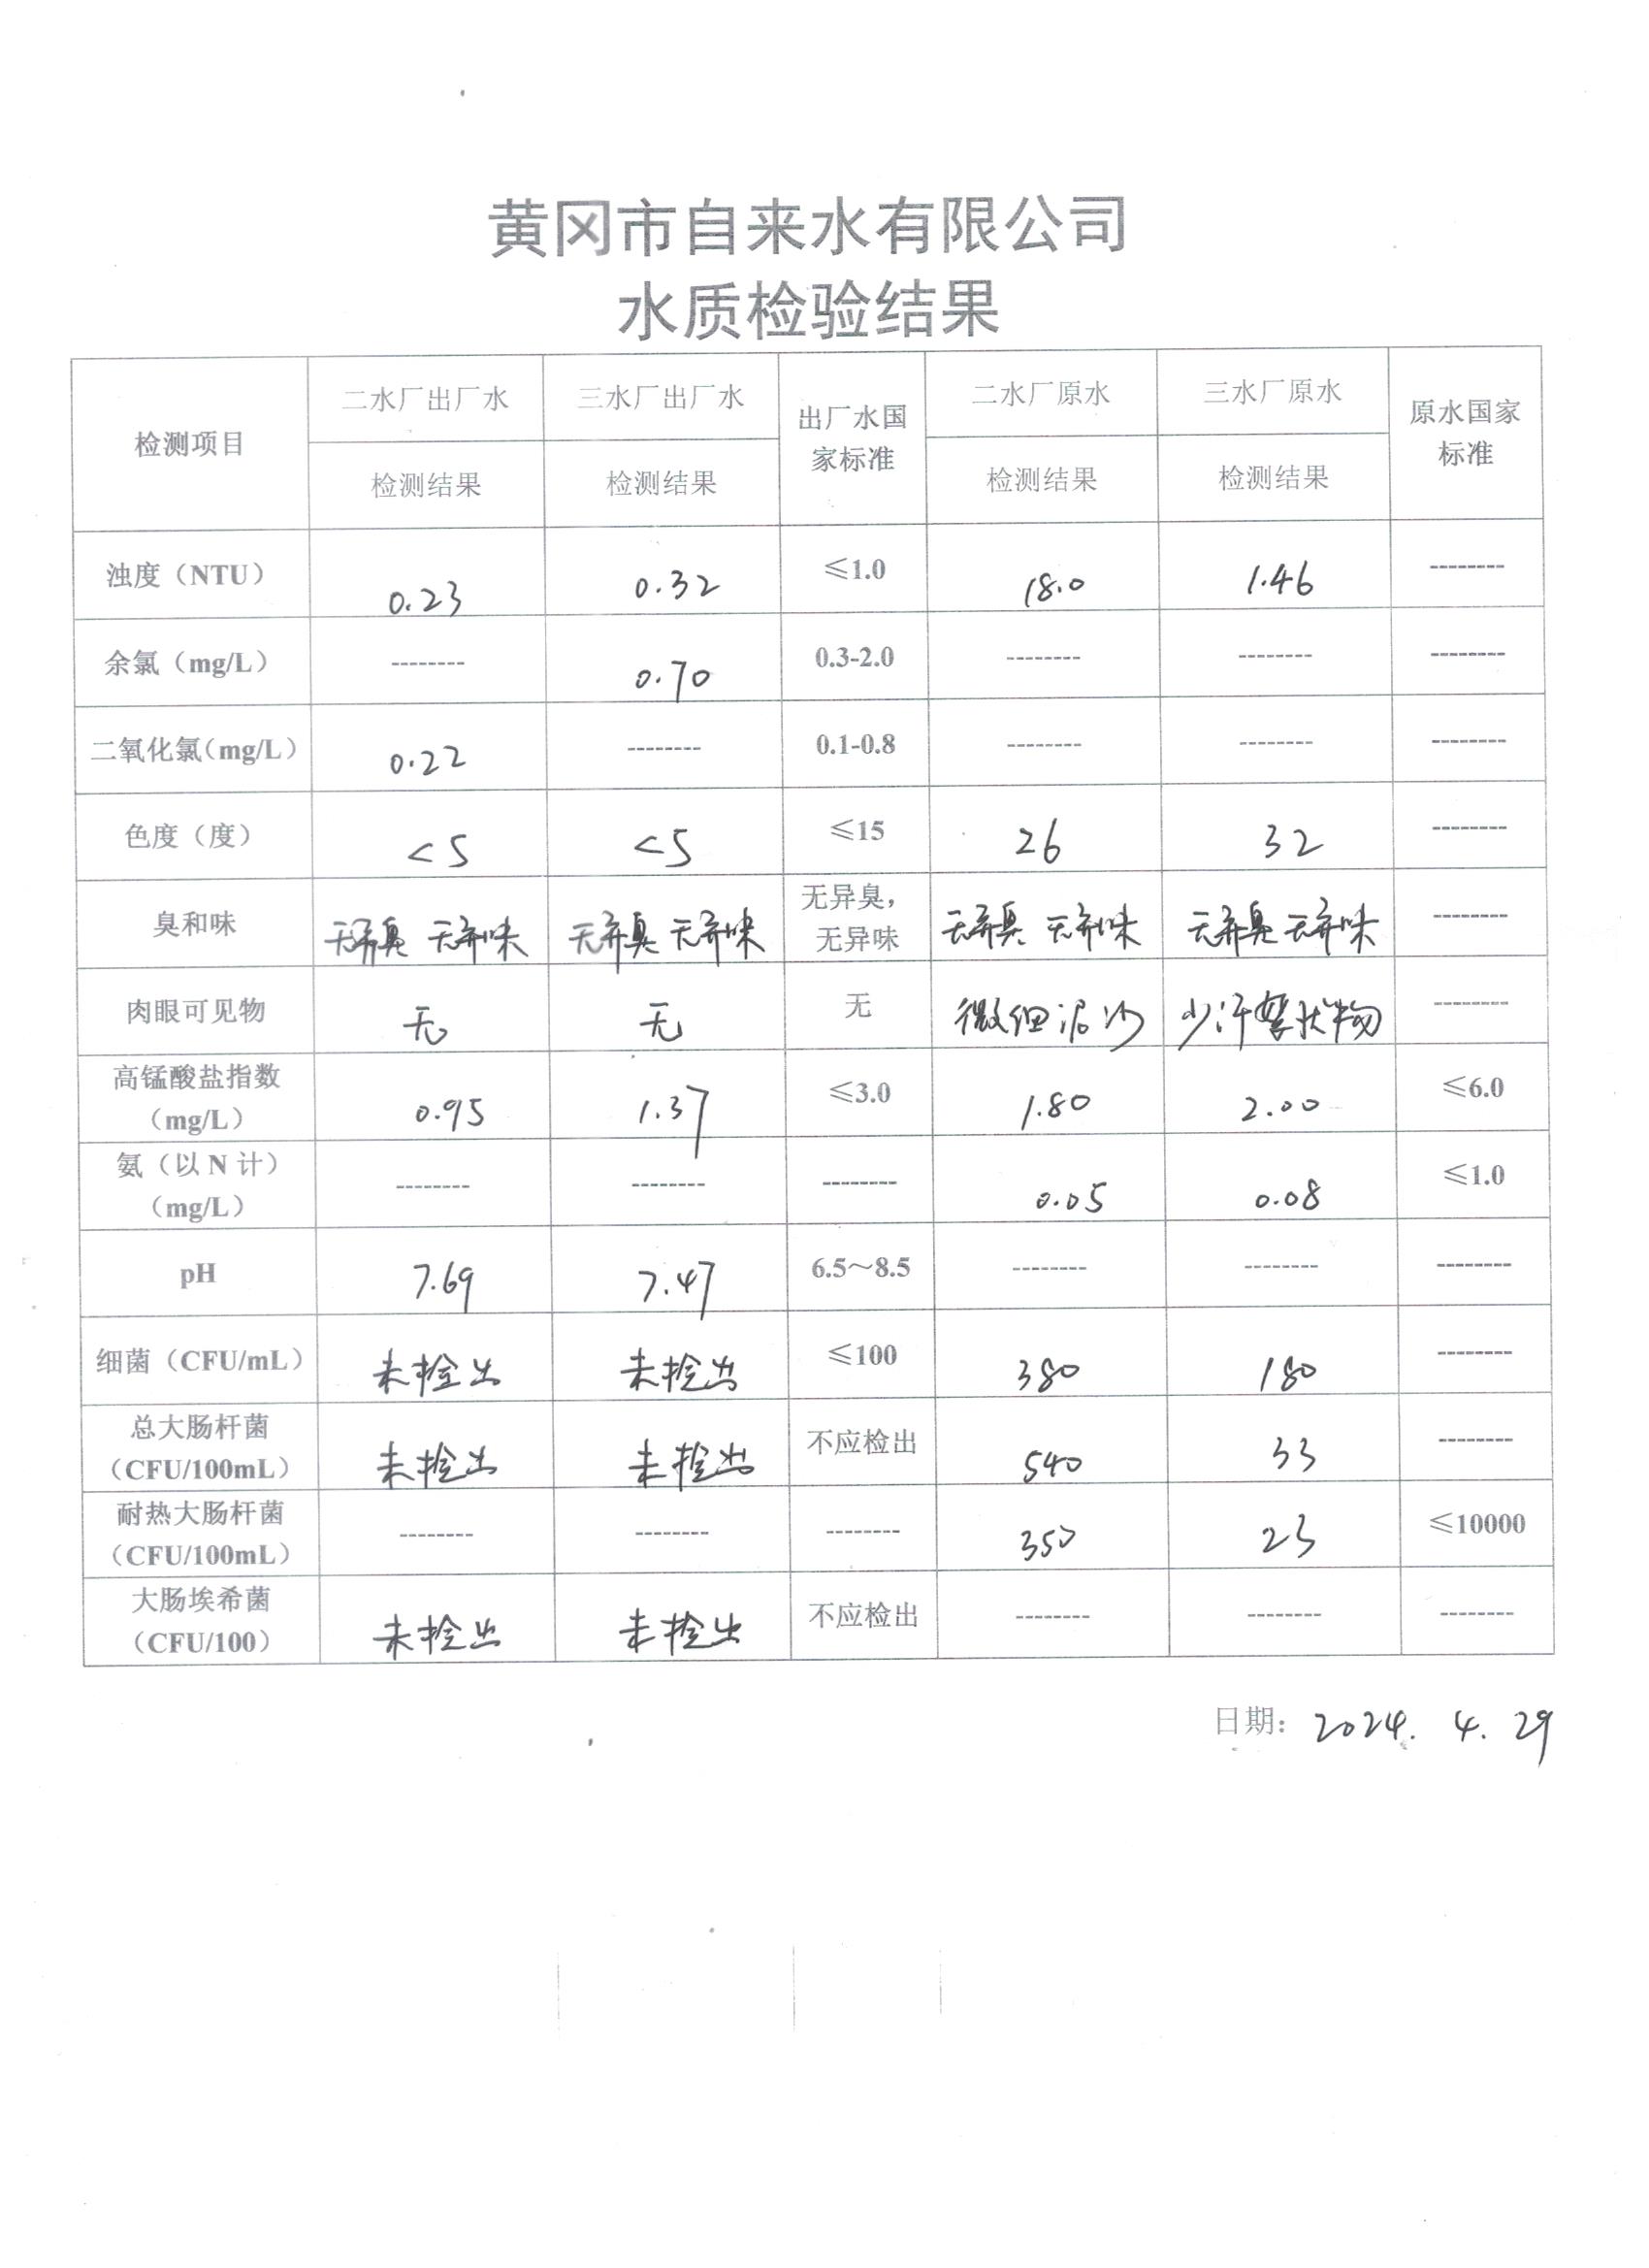 黄冈市自来水有限公司
水质检验结果
检测项目 二水厂出厂水 三水厂出厂水 出厂水国家标准 二水厂原水 三水厂原水 原水国家标准
检测结果 检测结果 检测结果 检测结果
浊度（NTU） 0.23 0.32 ≤1.0 18.0 1.46 --------
余氯（mg/L） -------- 0.70 0.3-2.0 -------- -------- --------
二氧化氯（mg/L） 0.22 -------- 0.1-0.8 -------- -------- --------
色度（度） <5 <5 ≤15 26 32 --------
臭和味 无异臭 无异味 无异臭 无异味 无异臭，无异味 无异臭 无异味 无异臭 无异味 --------
肉眼可见物 无 无 无 微细泥沙 少许絮状物 --------
高锰酸盐指数（mg/L） 0.95 1.37 ≤3.0 1.80 2.00 ≤6.0
氨（以 N 计）（mg/L） -------- -------- -------- 0.05 0.08 ≤1.0
pH 7.69 7.47 6.5～8.5 -------- -------- --------
细菌（CFU/mL） 未检出 未检出 ≤100 380 180 --------
总大肠杆菌（CFU/100mL） 未检出 未检出 不应检出 540 33 --------
耐热大肠杆菌（CFU/100mL） -------- -------- -------- 350 23 ≤10000
大肠埃希菌（CFU/100） 未检出 未检出 不应检出 -------- -------- --------
日期：2024. 4. 29